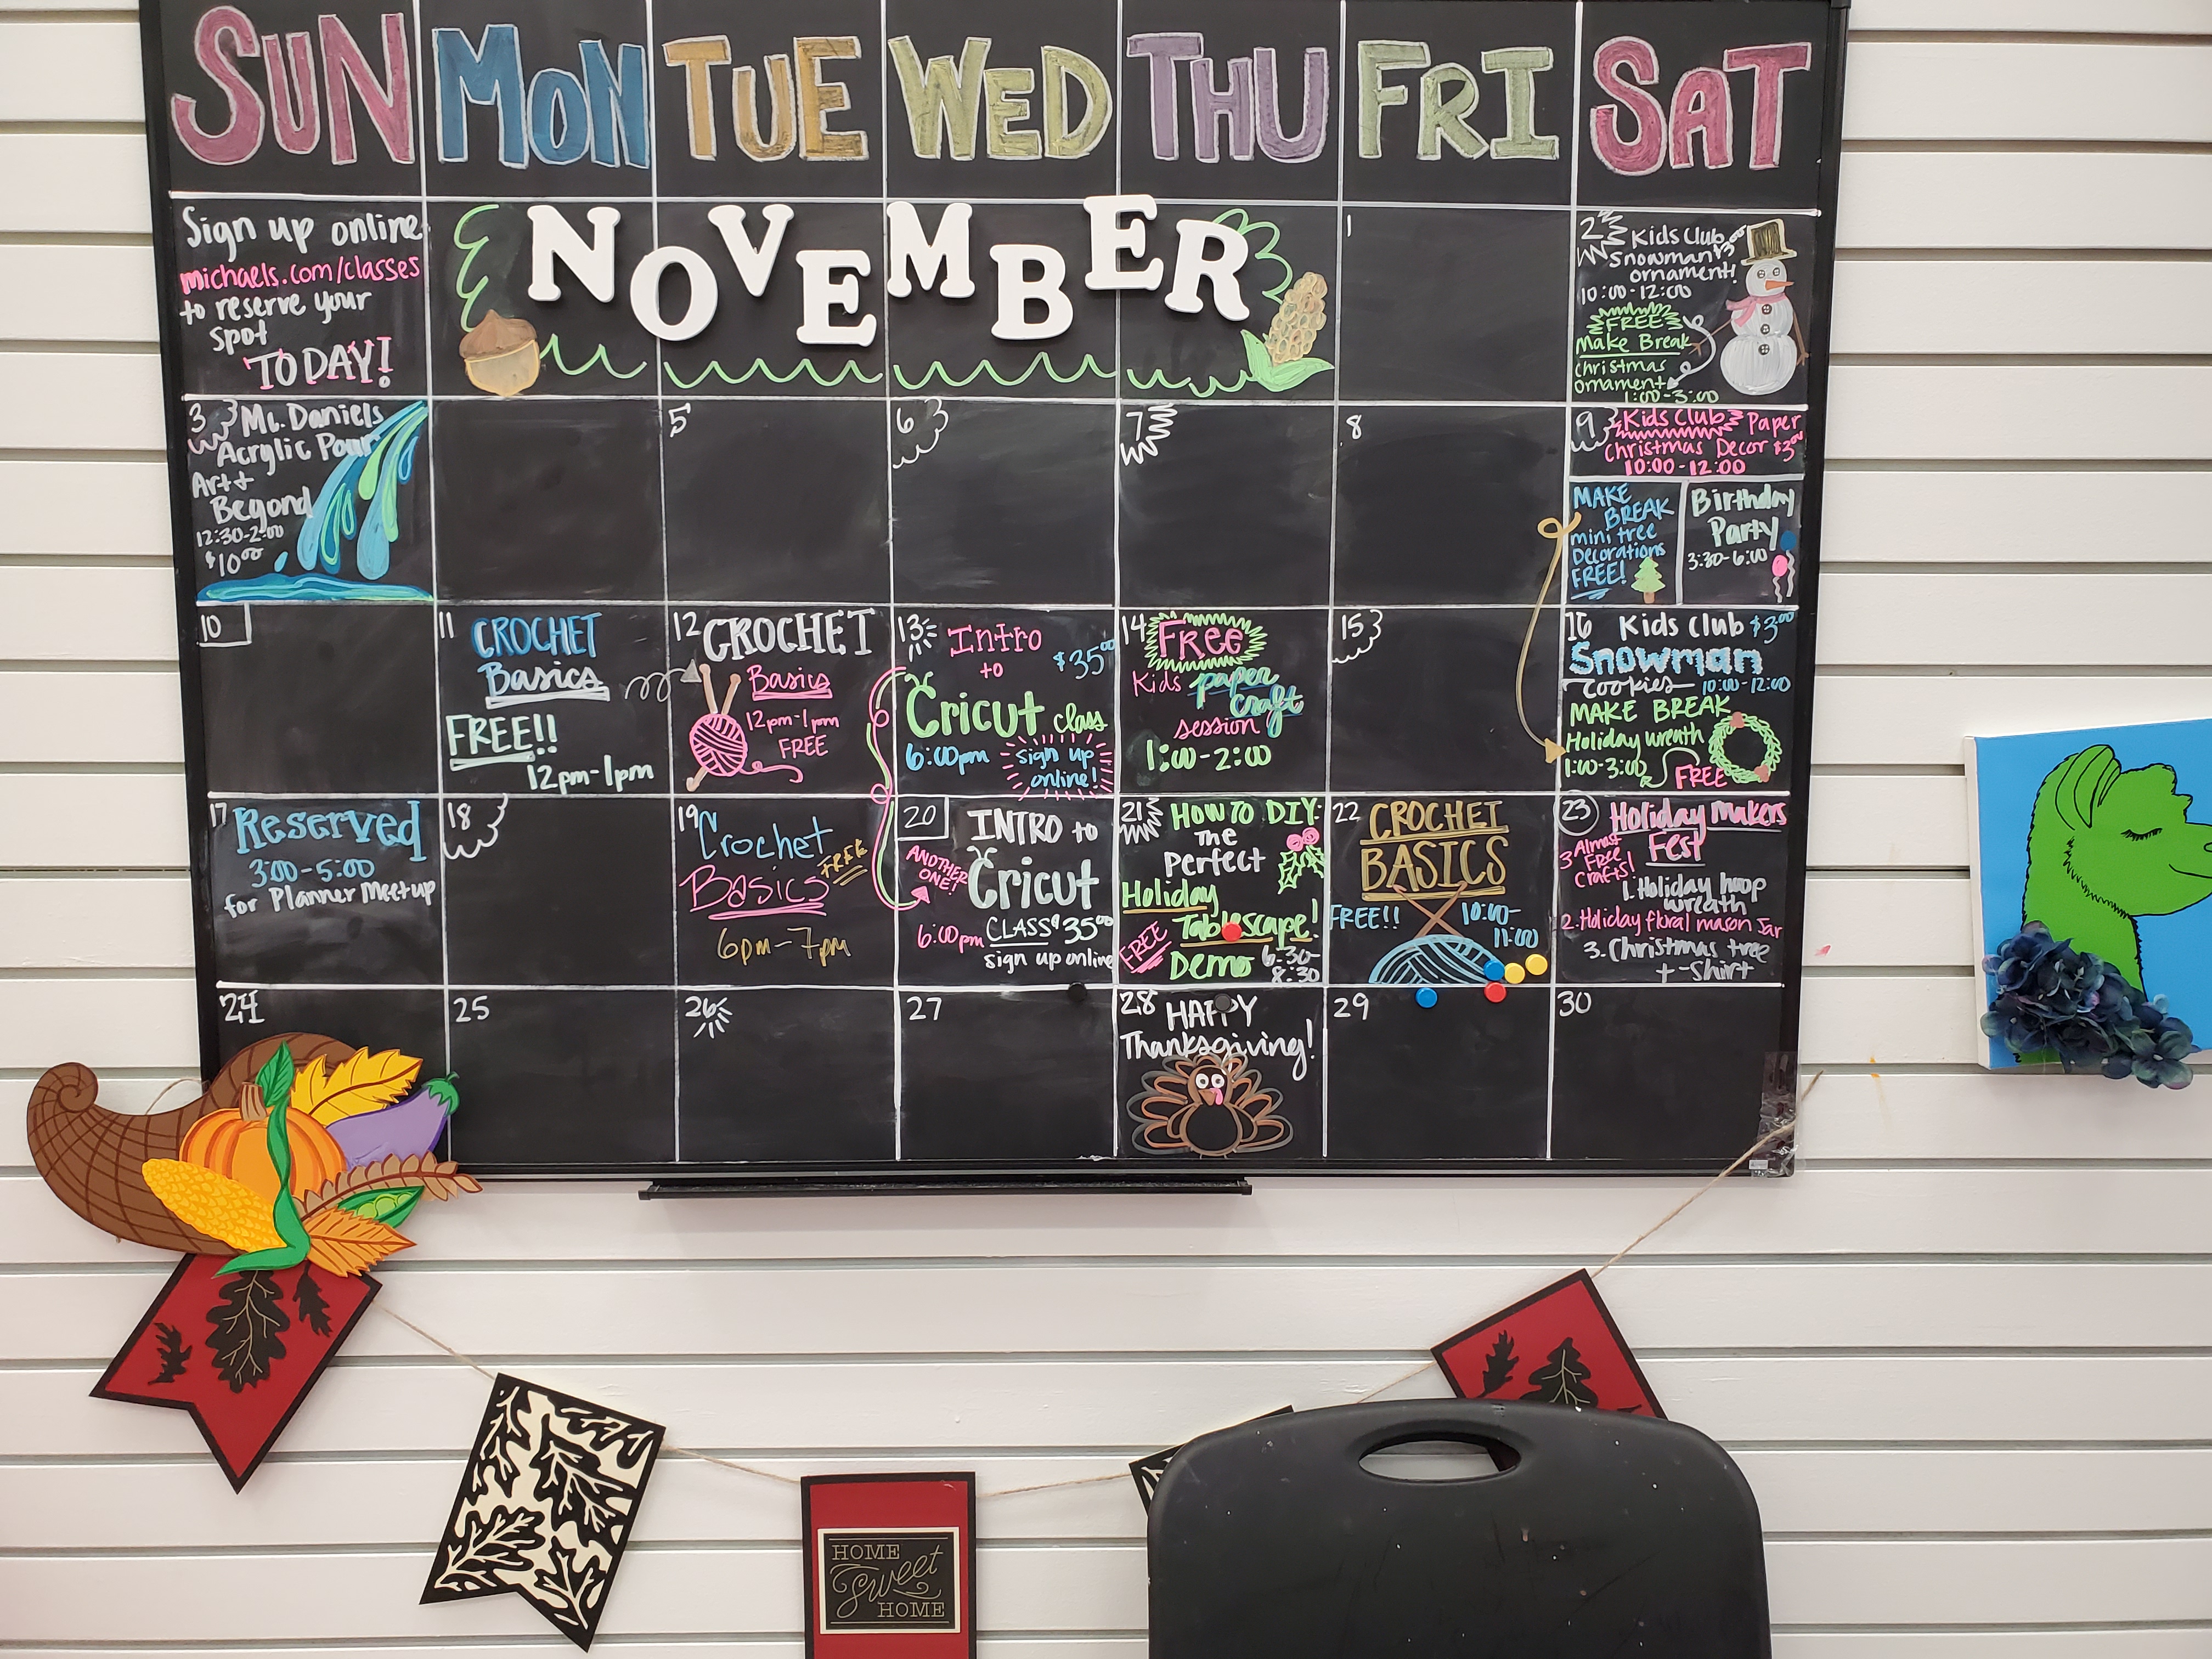 SUN MON TUE WED THU FRI SAT
Sign up online
michaels.com/classes
to reserve your
spot
TODAY!
NOVEMBER
1
2
Kids Club $3⁰⁰
Snowman
ornament!
10:00-12:00
FREE
Make Break
christmas
ornament
1:00-3:00
3
Ms. Daniels
Acrylic Pour
Art +
Beyond
12:30-2:00
$10⁰⁰
5
6
7
8
9
Kids Club Paper
Christmas Decor $3⁰⁰
10:00-12:00
MAKE
BREAK
mini tree
Decorations
FREE!
Birthday
Party
3:30-6:00
10
11
CROCHET
Basics
FREE!!
12pm-1pm
12
CROCHET
Basics
12pm-1pm
FREE
13
Intro
to
$35⁰⁰
Cricut class
6:00pm
sign up
online!
14
Free
Kids paper
craft
session
1:00-2:00
15
16
Kids Club $3⁰⁰
Snowman
cookies 10:00-12:00
MAKE BREAK
Holiday wreath
1:00-3:00
FREE
17
Reserved
3:00-5:00
for Planner Meetup
18
19
Crochet
FREE
Basics
6pm-7pm
20
INTRO to
ANOTHER
ONE!
Cricut
6:00pm CLASS $35⁰⁰
sign up online
21
HOW TO DIY:
The
Perfect
Holiday
Tablescape!
FREE
Demo 6:30-
8:30
22
CROCHET
BASICS
FREE!!
10:00-
11:00
23
Holiday Makers
Fest
3 Almost
Free
Crafts!
1. Holiday hoop
wreath
2. Holiday floral mason jar
3. Christmas tree
t-shirt
24
25
26
27
28
HAPPY
Thanksgiving!
29
30
HOME
Sweet
HOME